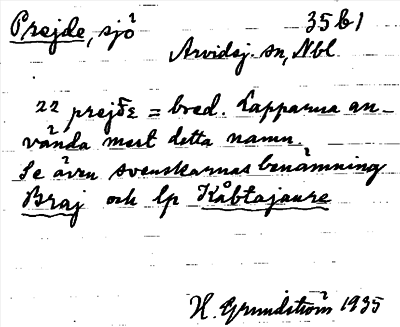 Prejde, sjö 35b1
Arvidsj. sn, Nbl
22 prejδε = bred. Lapparna an-
vända mest detta namn.
Se även svenskarnas benämning
Braj och lp Kåbtajaure
H. Grundström 1935